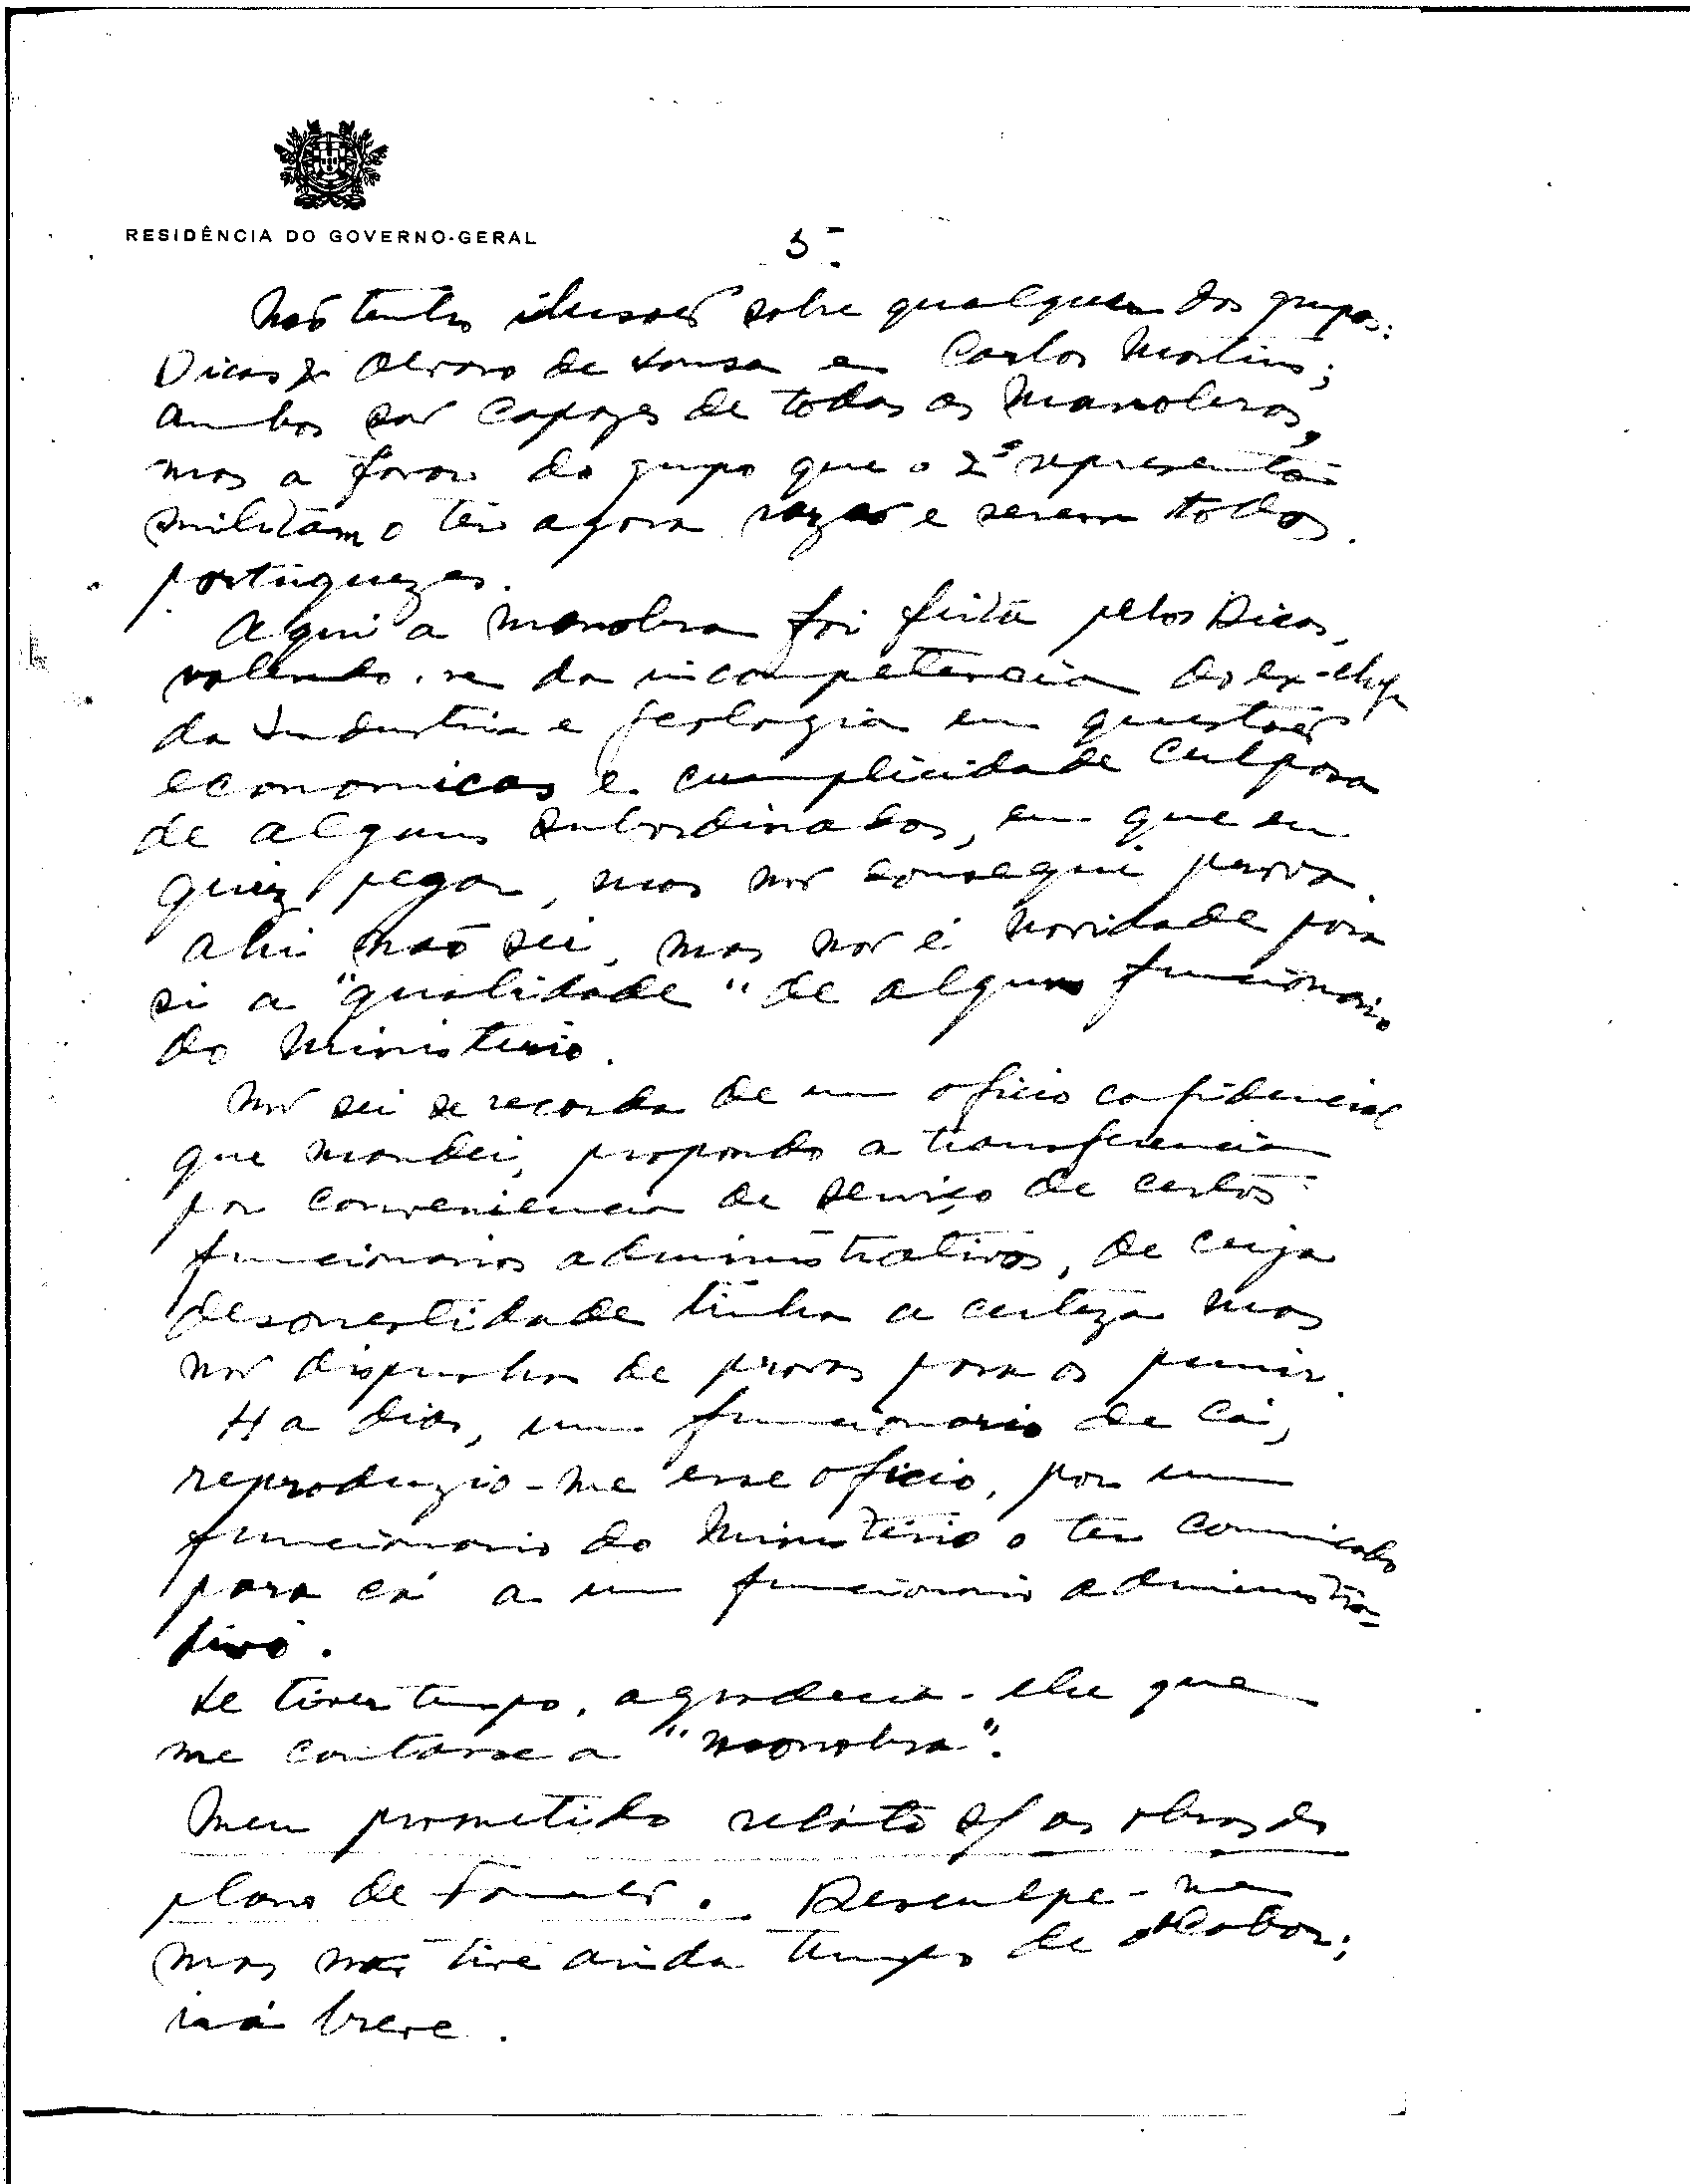 RESIDÊNCIA DO GOVERNO-GERAL
5.
Não tenho ilusões sobre qualquer dos grupos:
Dicas & Alvaro de Sousa e Carlos Martins;
ambos são capazes de todas as manobras,
mas a favor do grupo que o 2º representa
militam o ter agora razão e serem todos
portuguezes.
Aqui a manobra foi feita pelos Dicas,
valendo-se da incompetencia do ex-chefe
da Industria e Geologia em questões
economicas e cumplicidade culposa
de alguns subordinados, em que eu
quiz pegar, mas não consegui prova.
Ahi não sei, mas não é novidade para
si a "qualidade" de alguns funcionarios
do Ministerio.
Não sei se recorda de um oficio confidencial
que mandei, propondo a transferencia
por conveniencia de serviço de certos
funcionarios administrativos, de cuja
desonestidade tinha a certeza mas
não dispunha de provas para os punir.
Ha dias, um funcionario de cá,
reproduzio-me esse oficio, por um
funcionario do Ministerio o ter comunicado
para cá a um funcionario administra-
tivo.
Se tiver tempo, agradecia-lhe que
me contasse a "manobra".
Meu prometido relato s/ as obras do
plano de Fomento. Desculpe-me
mas não tive ainda tempo de acabar;
irá breve.